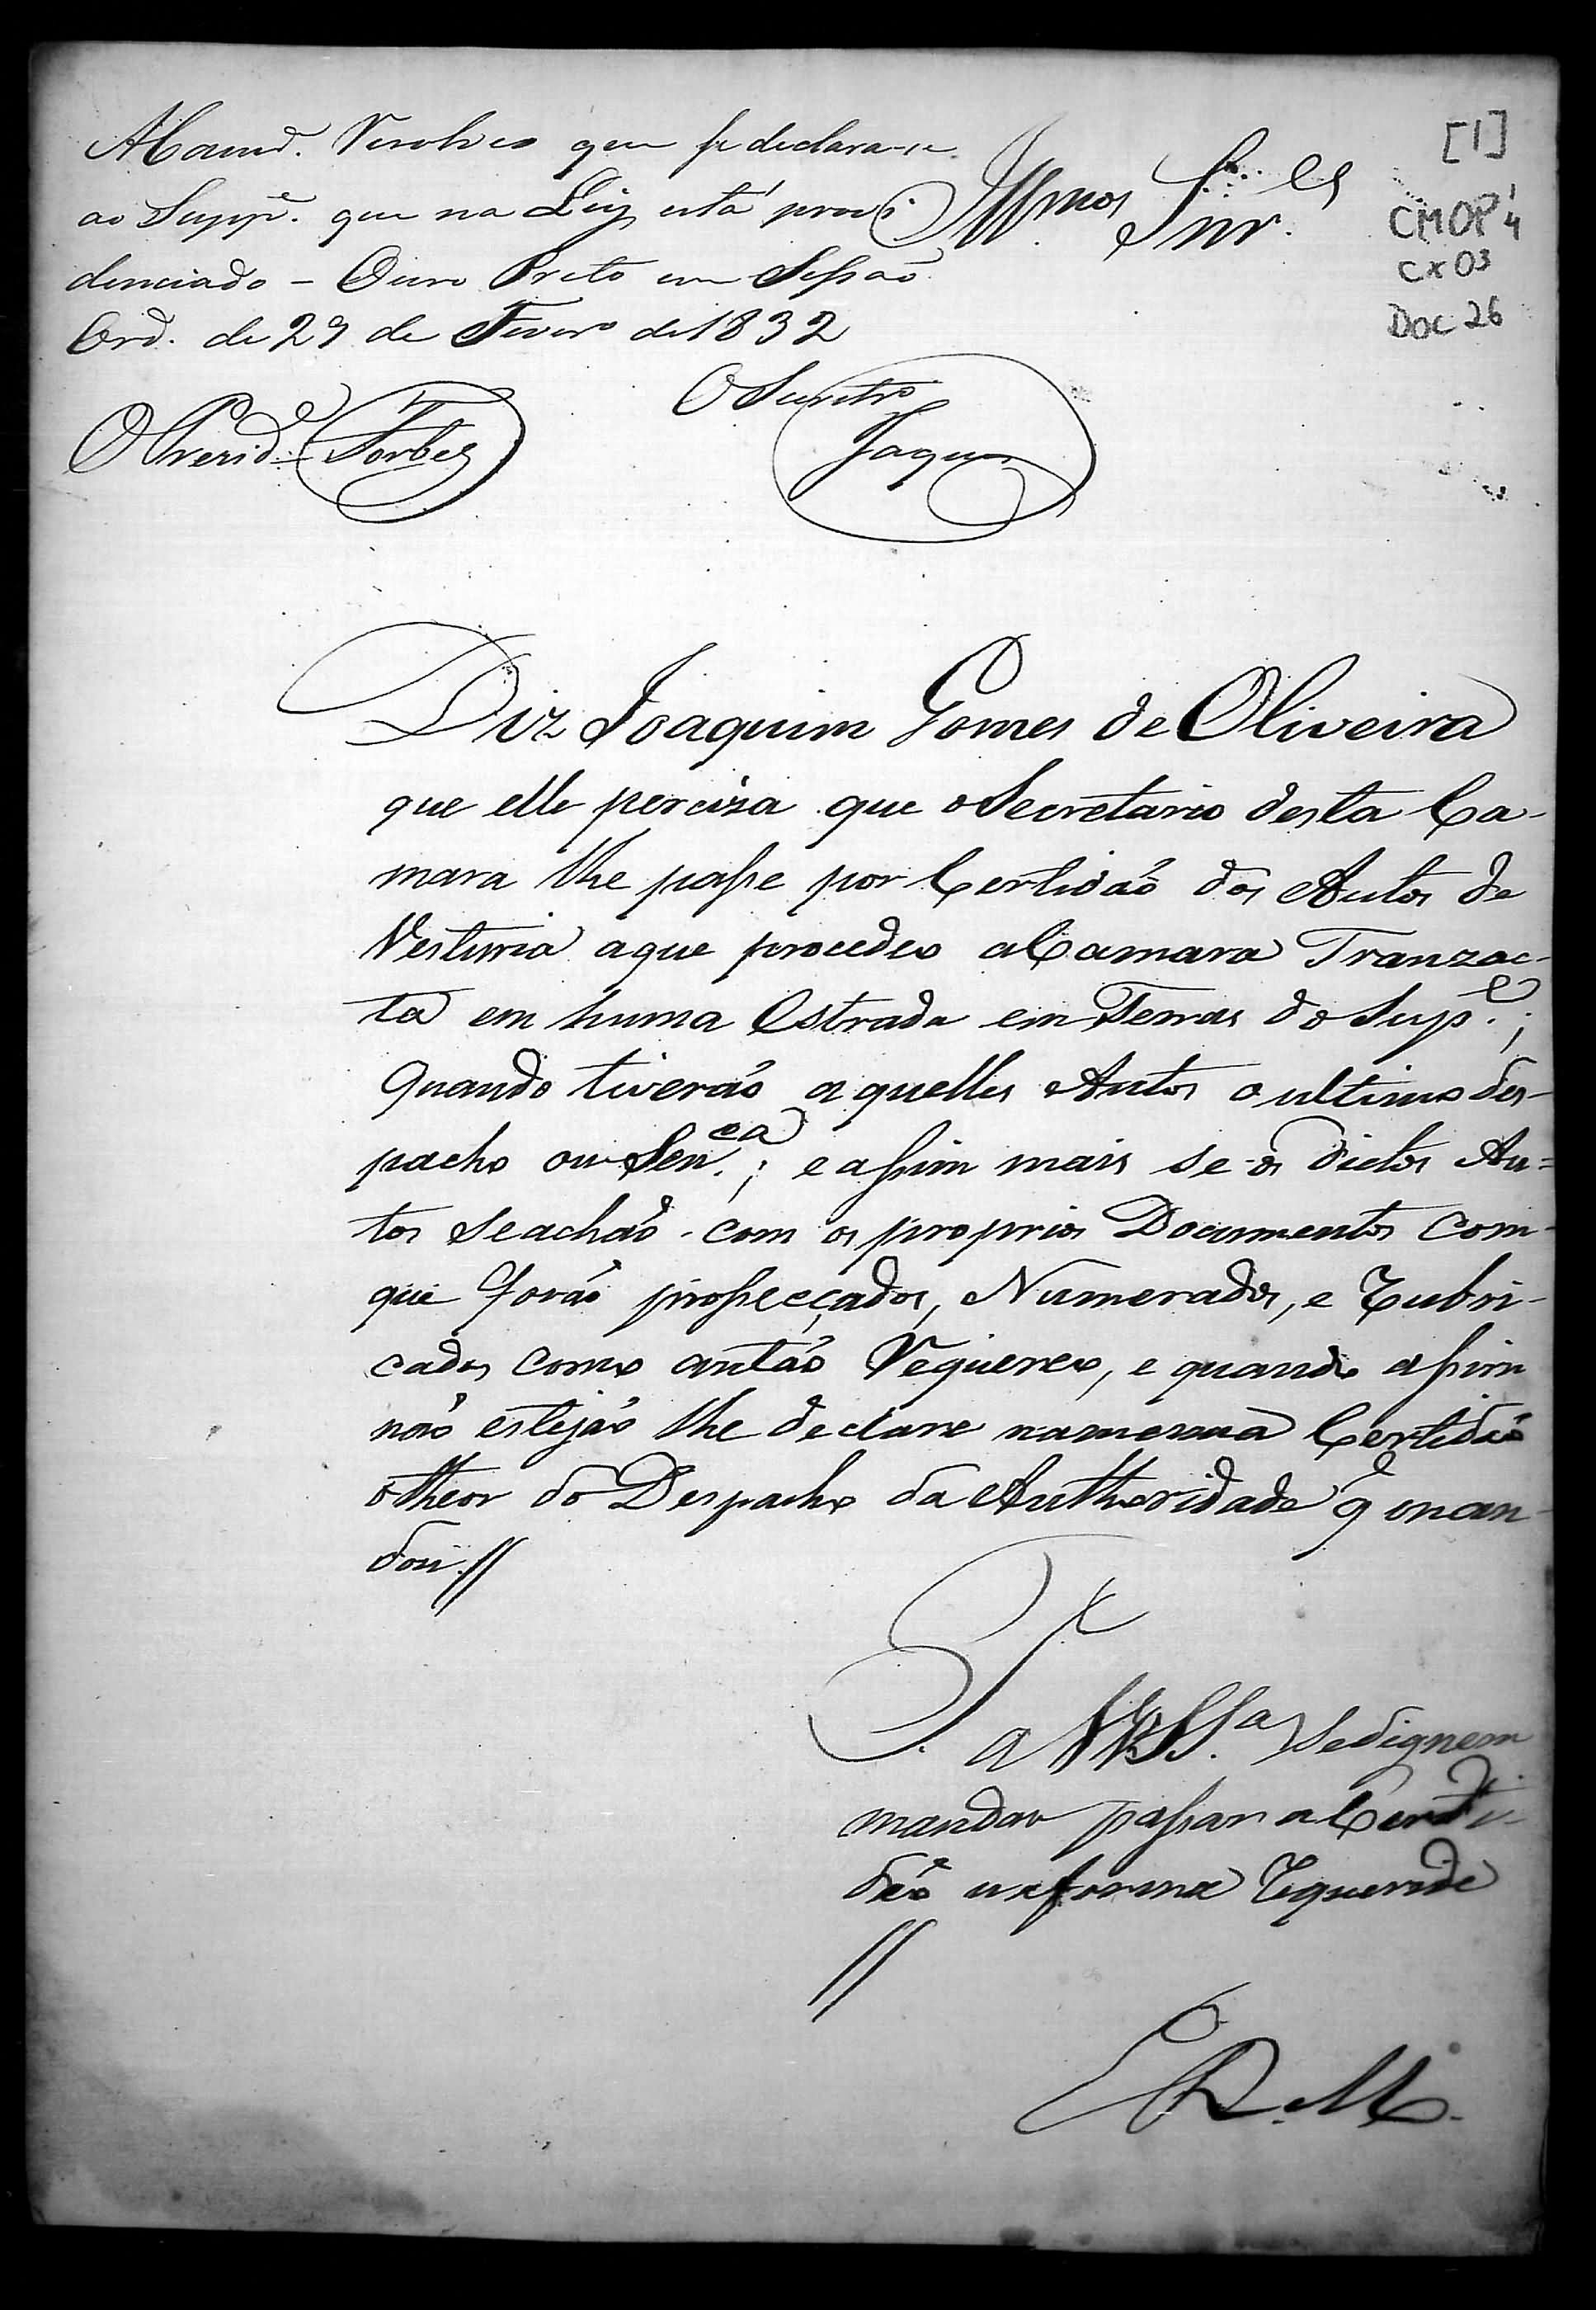 [1]
CMOP 1/4
Cx 03
Doc 26
A Camr.ª Resolveo que se declara-se
ao Supp.e que na Ley está provi
denciado - Ouro Preto em Sessaõ
Ord. de 29 de Fever.º de 1832
O Prezid.e Forbes
O Secretr.º
Jaques
Illmos Snr.es
Diz Joaquim Gomes de Oliveira
que elle perciza que o Secretario desta Ca-
mara lhe passe por Certidaõ dos Autos de
Vesturia a que procedeo a Camara Tranzac-
ta em huma Estrada em Terras do Sup.e;
Quando tiveraõ aquelles Autos o ultimo des-
pacho ou Sen.ca; e assim mais se os dictos Au=
tos se achaõ com os proprios Documentos com-
que foraõ prossecçados, Numerados, e Rubri-
cados como antaõ Requereo, e quando assim
naõ estejaõ lhe declare na mesma Certidaõ
o theor do Despacho da Authoridade q̃ man-
dou.//
P.
a VVSS.as se dignem
mandar passar a Certi-
daõ na forma Requerida
//
E R. M.